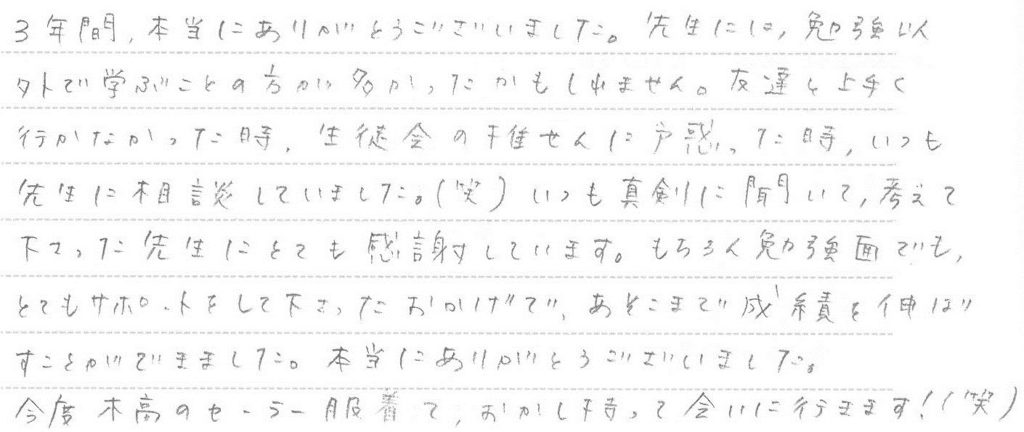 3年間,本当にありがとうございました。先生には,勉強以
外で学ぶことの方が多かったかもしれません。友達と上手く
行かなかった時,生徒会の推せんに戸惑った時,いつも
先生に相談していました。(笑)いつも真剣に聞いて,考えて
下さった先生にとても感謝しています。もちろん勉強面でも,
とてもサポートをして下さったおかげで,あそこまで成績を伸ば
すことができました。本当にありがとうございました。
今度木高のセーラー服着て,おかし持って会いに行きます!(笑)